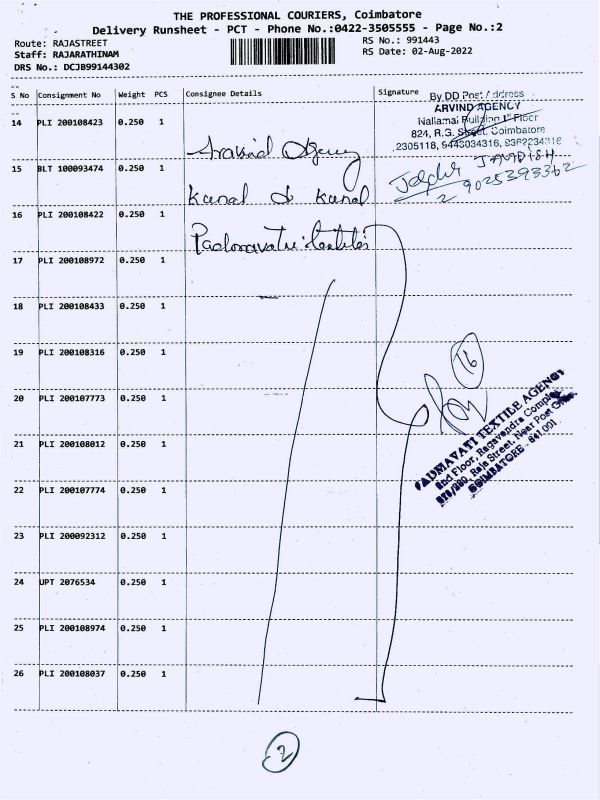 THE PROFESSIONAL COURIERS, Coimbatore
Delivery Runsheet - PCT - Phone No.:0422-3505555 - Page No.:2
Route: RAJASTREET
Staff: RAJARATHINAM
DRS No.: DCJB99144302
RS No.: 991443
RS Date: 02-Aug-2022
S No Consignment No Weight PCS Consignee Details Signature
By DD Post / Address
ARVIND AGENCY
Nallamai Building 1st Floor
824, R.G. Street, Coimbatore
2305118, 9443034316, 9362234316
14 PLI 200108423 0.250 1 Aravind Agency
JAGDISH
9025393362
2
15 BLT 100093474 0.250 1 Kunal & Kunal
16 PLI 200108422 0.250 1 Padmavathi textiles
17 PLI 200108972 0.250 1
18 PLI 200108433 0.250 1
19 PLI 200108316 0.250 1
16
20 PLI 200107773 0.250 1
PADMAVATI TEXTILE AGENCY
2nd Floor, Ragavendra Complex
Raja Street, Near Post Office
COIMBATORE - 641 001
21 PLI 200108012 0.250 1
22 PLI 200107774 0.250 1
23 PLI 200092312 0.250 1
24 UPT 2076534 0.250 1
25 PLI 200108974 0.250 1
26 PLI 200108037 0.250 1
2